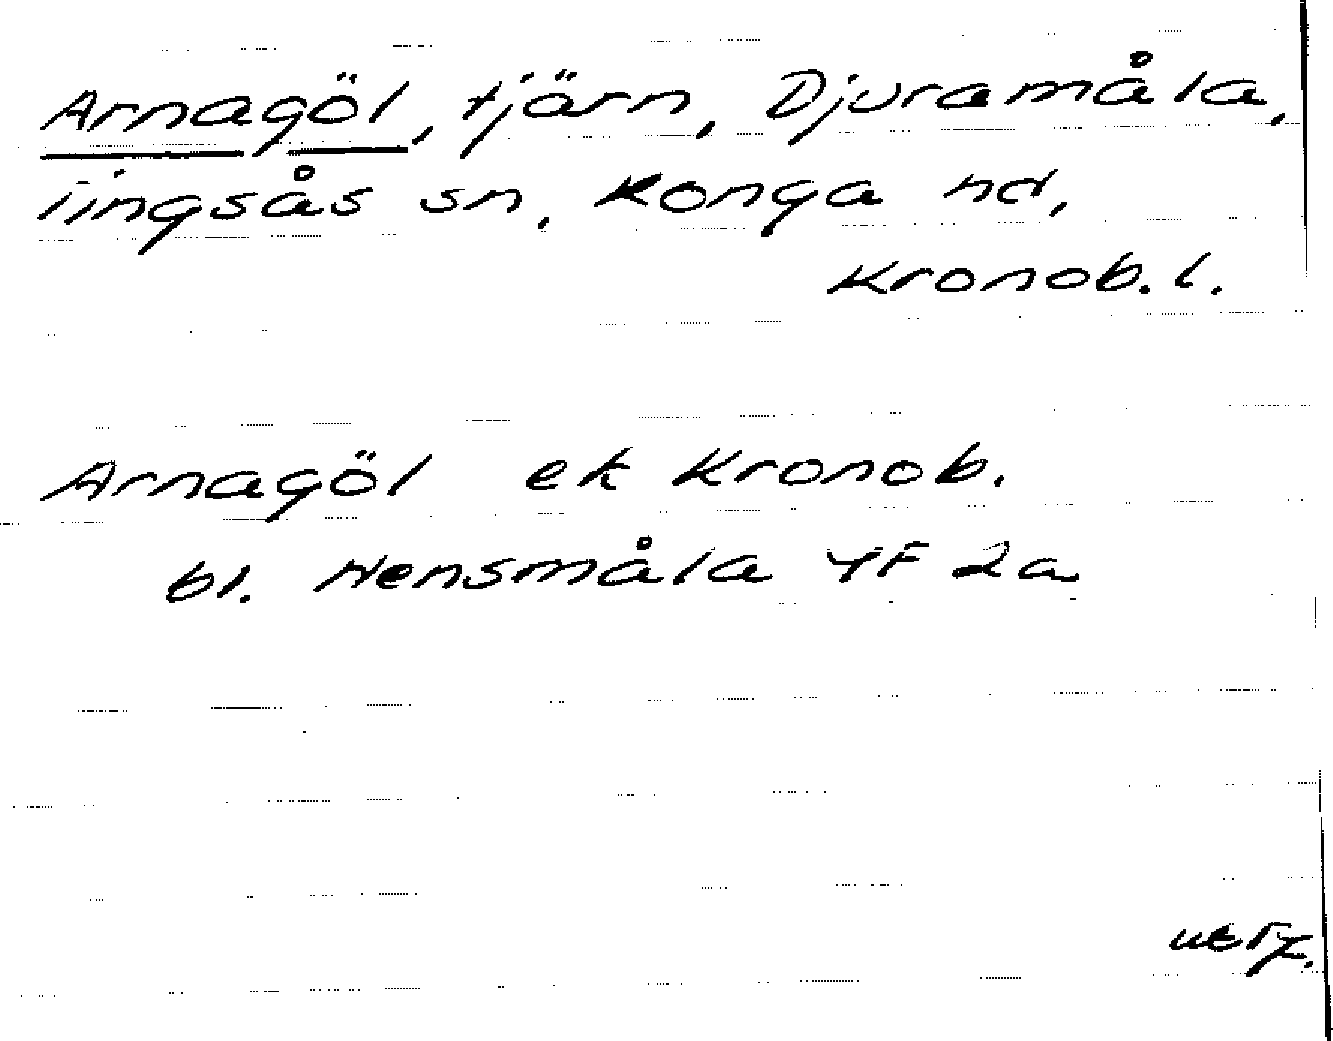 Arnagöl, tjärn, Djuramåla,
Tingsås sn, Konga hd,
Kronob. l.
Arnagöl ek Kronob.
bl. Hensmåla 4F 2a